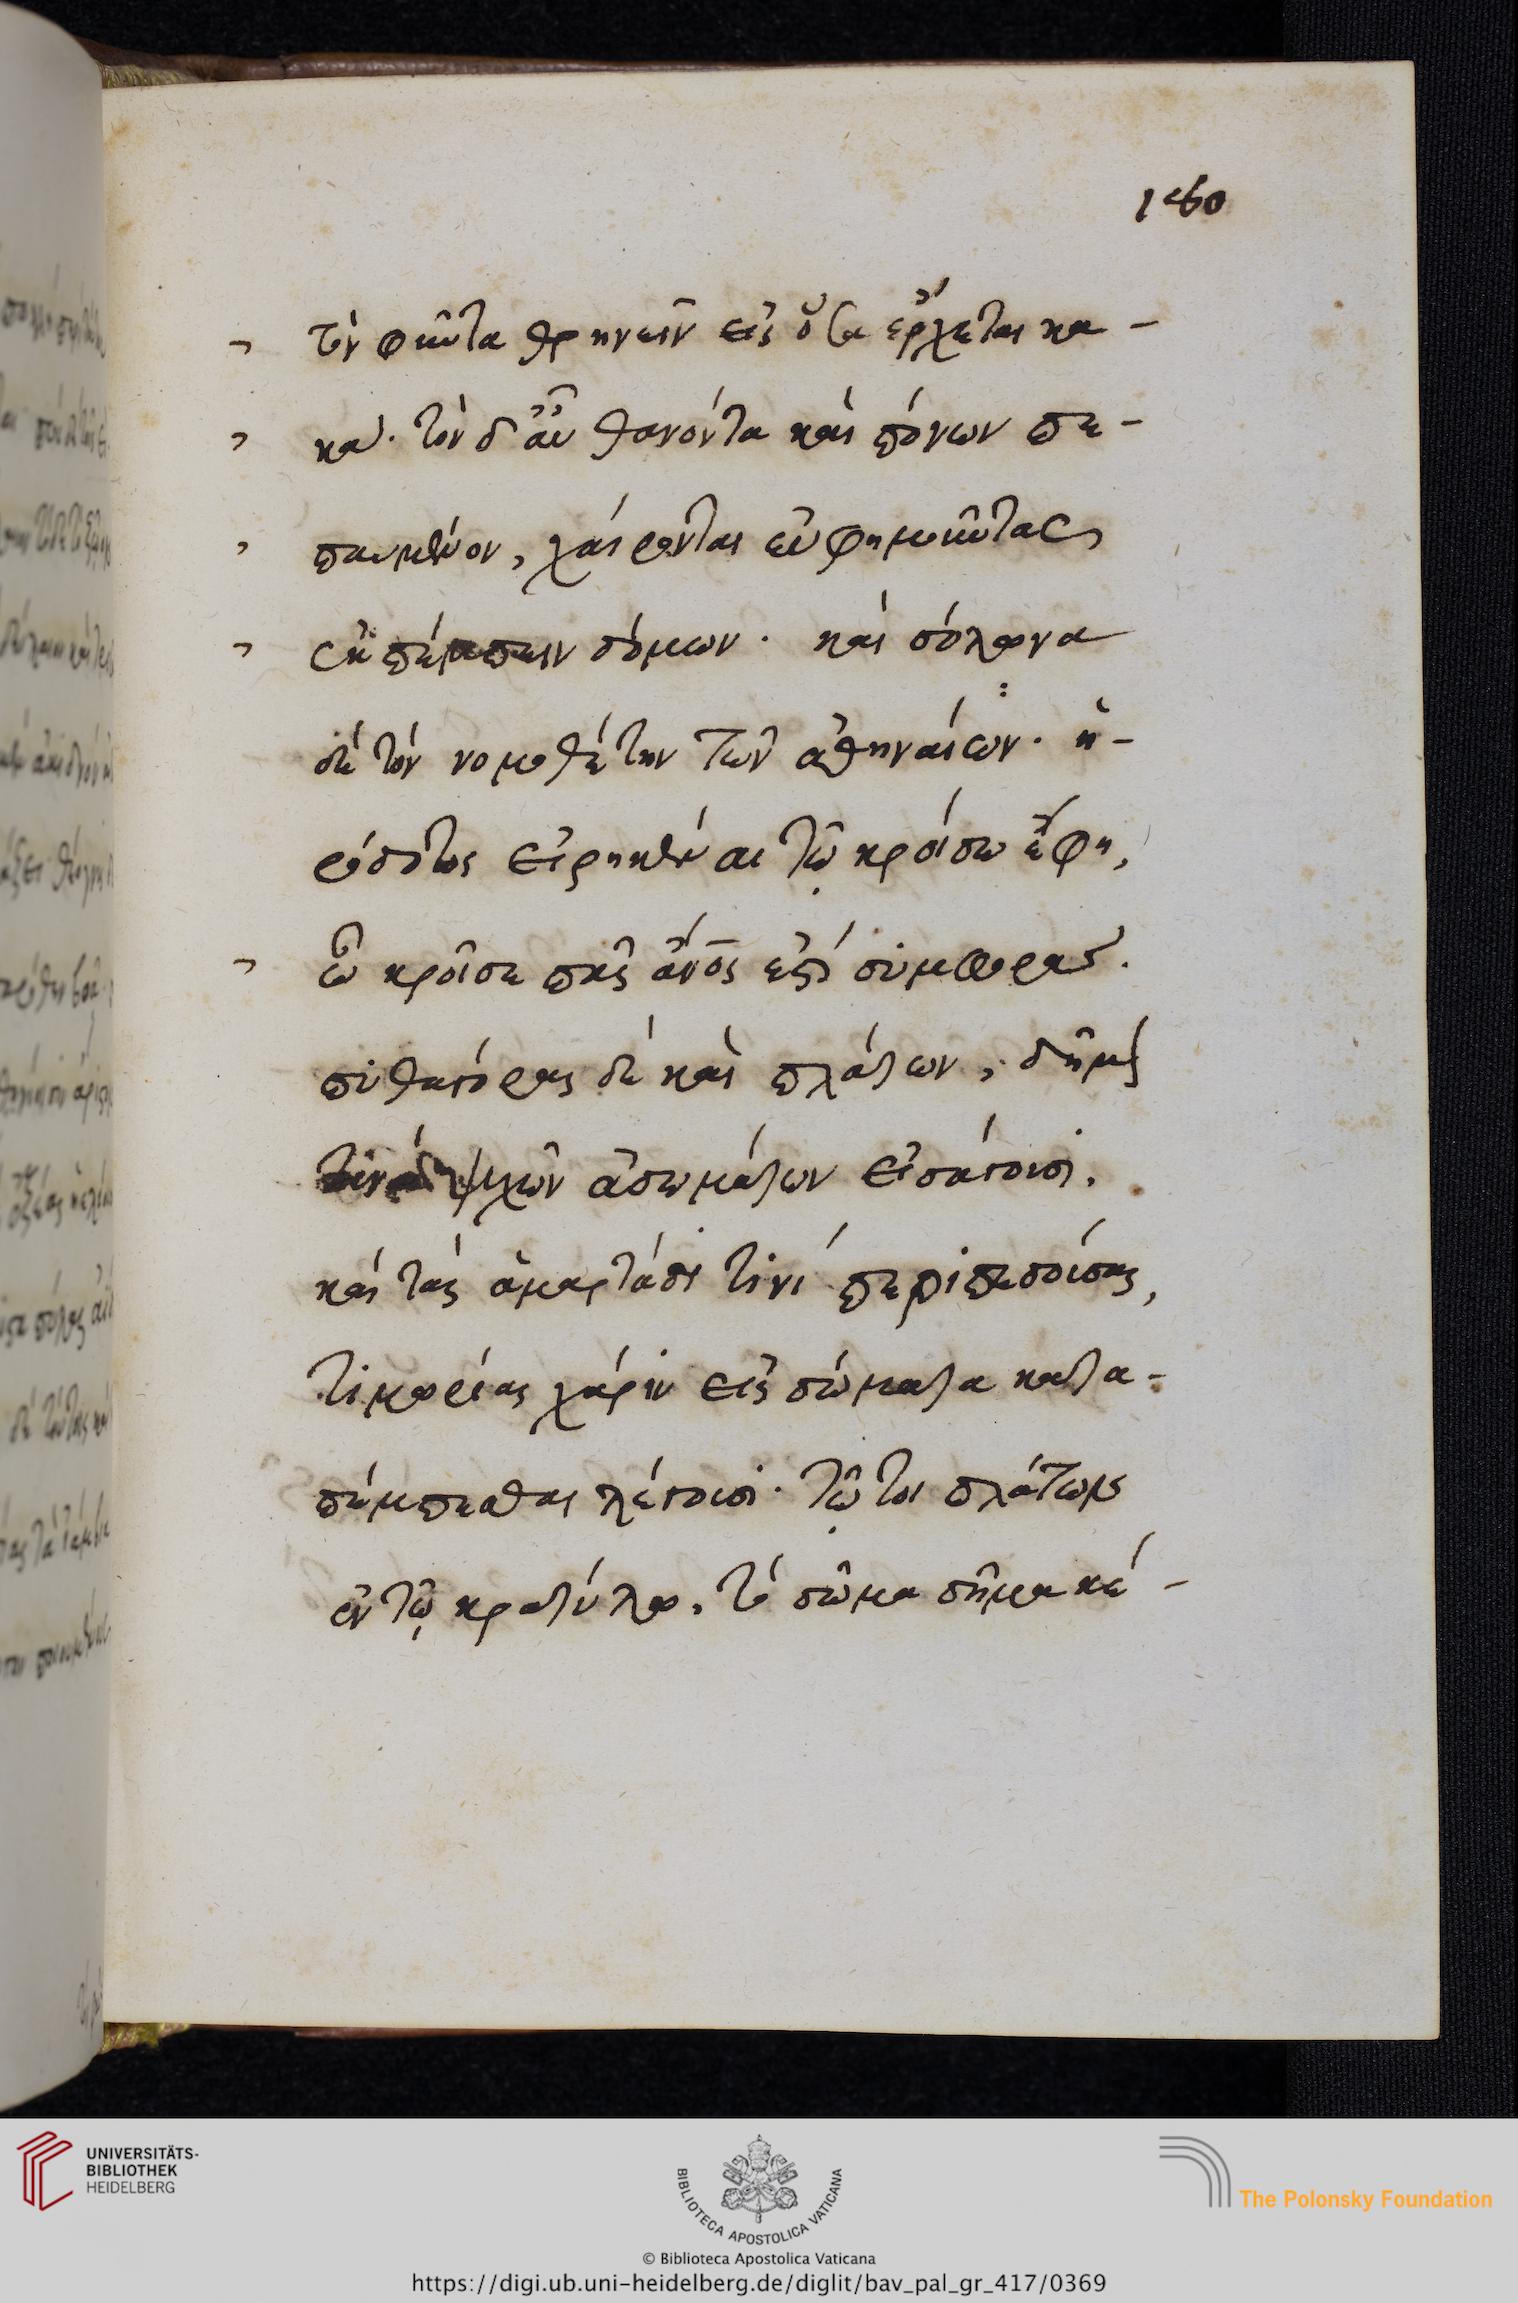 τὸν φῦντα θρηνεῖν εἰς ὅσα ἔρχεται κα-
κά. τὸν δ' αὖ θανόντα καὶ πόνων πε-
παυμένον, χαίροντας εὐφημοῦντας
ἐκπέμπειν δόμων. καὶ σόλωνα
δὲ τὸν νομοθέτην τῶν ἀθηναίων. ἡ-
ρόδοτος εἰρηκέναι τῷ κροίσω ἔφη,
ὦ κροῖσε πᾶς ἄνος ἐστὶ συμφορά.
πυθαγόρας δὲ καὶ πλάτων, δῆμόν
τινα ψυχῶν ἀσωμάτων εἰσάγουσι.
καὶ τὰς ἁμαρτάδι τινὶ περιπεσούσας,
τιμωρίας χάριν εἰς σώματα κατα-
πέμπεσθαι λέγουσι. τῷ τοι πλάτων
ἐν τῷ κρατύλω, τὸ σῶμα σῆμα κέ-
UNIVERSITÄTS-
BIBLIOTHEK
HEIDELBERG
BIBLIOTECA APOSTOLICA VATICANA
The Polonsky Foundation
© Biblioteca Apostolica Vaticana
https://digi.ub.uni-heidelberg.de/diglit/bav_pal_gr_417/0369